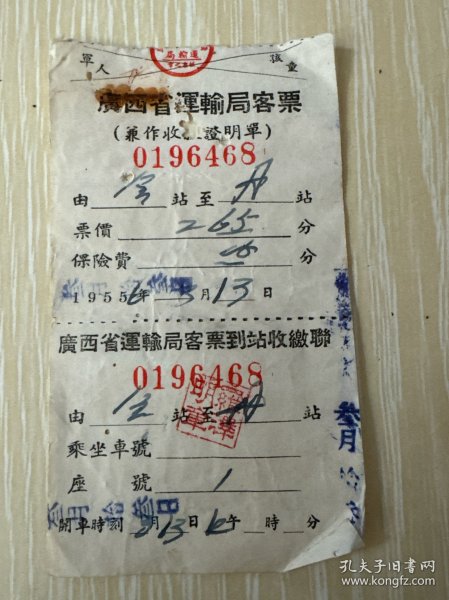 軍人 孩童
運輸局
廣西省運輸局客票
(兼作收 證明單)
0196468
由 站至 丹 站
票價 265 分
保險費 分
1955 6年 3月13日
廣西省運輸局客票到站收繳聯
0196468
由 站至 丹 站
乘坐車號
座號 1
開車時刻 3月13日 午 時 分
叁月拾叁日
孔夫子旧书网
www.kongfz.com